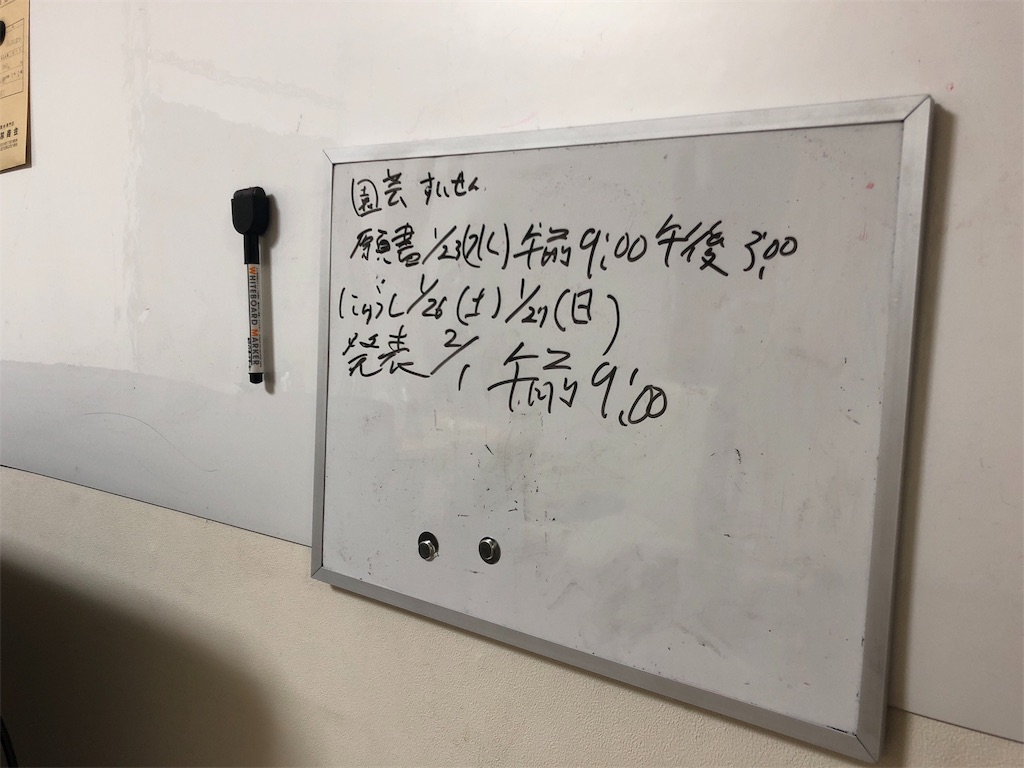 園芸 すいせん
願書 1/23(水) 午前9:00 午後3:00
1/26(土) 1/27(日)
発表 2/1 午前9:00
WHITEBOARD MARKER